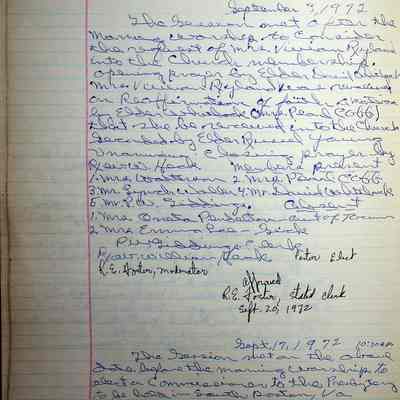 September 3, 1972
The Session met after the
Morning worship to Consider
the request of Mrs. Vivian Ryland
into the Church membership.
opening prayer by Elder David
Mrs. Vivian Ryland was received
on Reaffirmation of faith, a motion
by Elder Pearl Cobb
that she be received into the Church
Seconded by Elder Russel
Unanimous. Closing prayer by
Members present
1. Mrs. 2. Mrs. Pearl Cobb
3. Mr. Walter 4. Mr. David
5. Mr. P.W. Giddings. Absent
1. Mrs. Out of Town
2. Mrs. Emma Lee - Sick
P.W. Giddings, Clerk
William Pastor Elect
R.E. Foster, moderator
approved
R.E. Foster, stated clerk
Sept. 20, 1972
Sept. 17, 1972 10:30 a.m.
The Session met on the above
date before the morning worship to
elect a Commissioner to the Presbytery
to be held in South Boston, Va